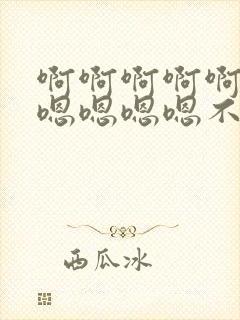 啊啊啊啊啊
嗯嗯嗯嗯不
西瓜冰